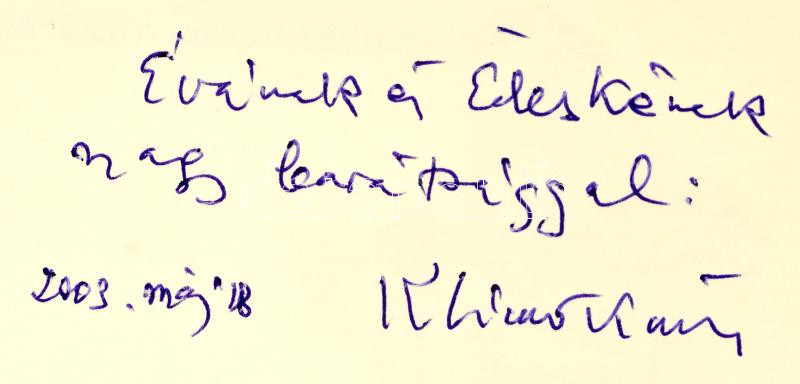 Évának és Édeskének
nagy barátsággal:
2003. máj 18 Klimó Károly